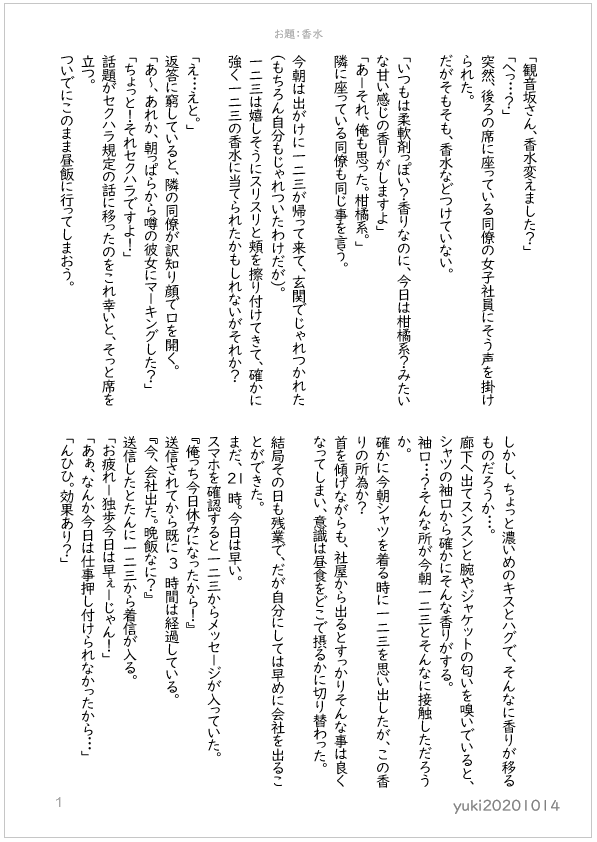 お題：香水
「観音坂さん、香水変えました？」
「へっ…？」
突然、後ろの席に座っている同僚の女子社員にそう声を掛け
られた。
だがそもそも、香水などつけていない。
「いつもは柔軟剤っぽい？香りなのに、今日は柑橘系？みたい
な甘い感じの香りがしますよ」
「あーそれ、俺も思った。柑橘系。」
隣に座っている同僚も同じ事を言う。
今朝は出がけに一二三が帰って来て、玄関でじゃれつかれた
(もちろん自分もじゃれついたわけだが)。
一二三は嬉しそうにスリスリと頬を擦り付けてきて、確かに
強く一二三の香水に当てられたかもしれないがそれか？
「え…えと。」
返答に窮していると、隣の同僚が訳知り顔で口を開く。
「あ〜、あれか、朝っぱらから噂の彼女にマーキングした？」
「ちょっと！それセクハラですよ！」
話題がセクハラ規定の話に移ったのをこれ幸いと、そっと席を
立つ。
ついでにこのまま昼飯に行ってしまおう。
しかし、ちょっと濃いめのキスとハグで、そんなに香りが移る
ものだろうか…。
廊下へ出てスンスンと腕やジャケットの匂いを嗅いでいると、
シャツの袖口から確かにそんな香りがする。
袖口…？そんな所が今朝一二三とそんなに接触しただろう
か。
確かに今朝シャツを着る時に一二三を思い出したが、この香
りの所為か？
首を傾げながらも、社屋から出るとすっかりそんな事は良く
なってしまい、意識は昼食をどこで摂るかに切り替わった。
結局その日も残業で、だが自分にしては早めに会社を出るこ
とができた。
まだ、21時。今日は早い。
スマホを確認すると一二三からメッセージが入っていた。
『俺っち今日休みになったから！』
送信されてから既に3時間は経過している。
『今、会社出た。晩飯なに？』
送信したとたんに一二三から着信が入る。
「お疲れー独歩今日は早ぇーじゃん！」
「あぁ、なんか今日は仕事押し付けられなかったから…」
「んひひ。効果あり？」
1
yuki20201014